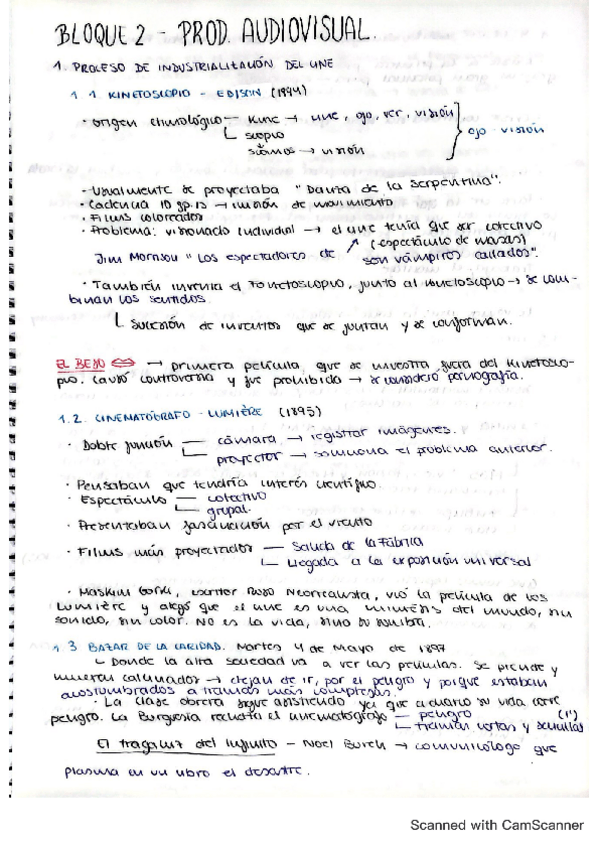 BLOQUE 2 - PROD. AUDIOVISUAL.
1. PROCESO DE INDUSTRIALIZACIÓN DEL CINE
1.1. KINETOSCOPIO - EDISON (1894)
· Origen etimológico — Kine → cine, ojo, ver, visión
scopio
→ visión
ojo - visión
- Usualmente se proyectaba "Danza de la Serpentina".
· Cadencia 10 fp.s → ilusión de movimiento
· Films coloreados
· Problema: visionado individual → el cine tenía que ser colectivo
(espectáculo de masas)
Jim Morrison "Los espectadores de son vampiros callados".
· También inventa el Fonetoscopio, junto al kinetoscopio → se com-
binan los sentidos.
Sucesión de inventos que se juntan y se conforman.
EL BESO ⇔ → primera película que se muestra fuera del kinetosco-
pio. Causó controversia y fue prohibido → se consideró pornografía.
1.2. CINEMATÓGRAFO - LUMIÈRE (1895)
· Doble función — cámara → registrar imágenes.
proyector → soluciona el problema anterior.
· Pensaban que tendría interés científico.
· Espectáculo — colectivo
grupal.
· Presentaban fascinación por el viento
· Films más proyectados — Salida de la Fábrica
Llegada a la exposición universal
· Maskim Gorki, escritor Ruso Neorrealista, vio la película de los
Lumière y alegó que el cine es una mímesis del mundo, sin
sonido, sin color. No es la vida, sino su sombra.
1.3 BAZAR DE LA CARIDAD. Martes 4 de Mayo de 1897
Donde la alta sociedad va a ver las películas. Se prende y
mueren calcinados → dejan de ir, por el peligro y porque estaban
acostumbrados a tramas más complejas.
· La clase obrera sigue asistiendo ya que a diario su vida corre
peligro. La Burguesía rechaza el cinematógrafo — peligro
tramas cortas y sencillas (1')
El tragaluz del infinito - Noel Burch → comunicólogo que
plasma en un libro el desastre.
Scanned with CamScanner